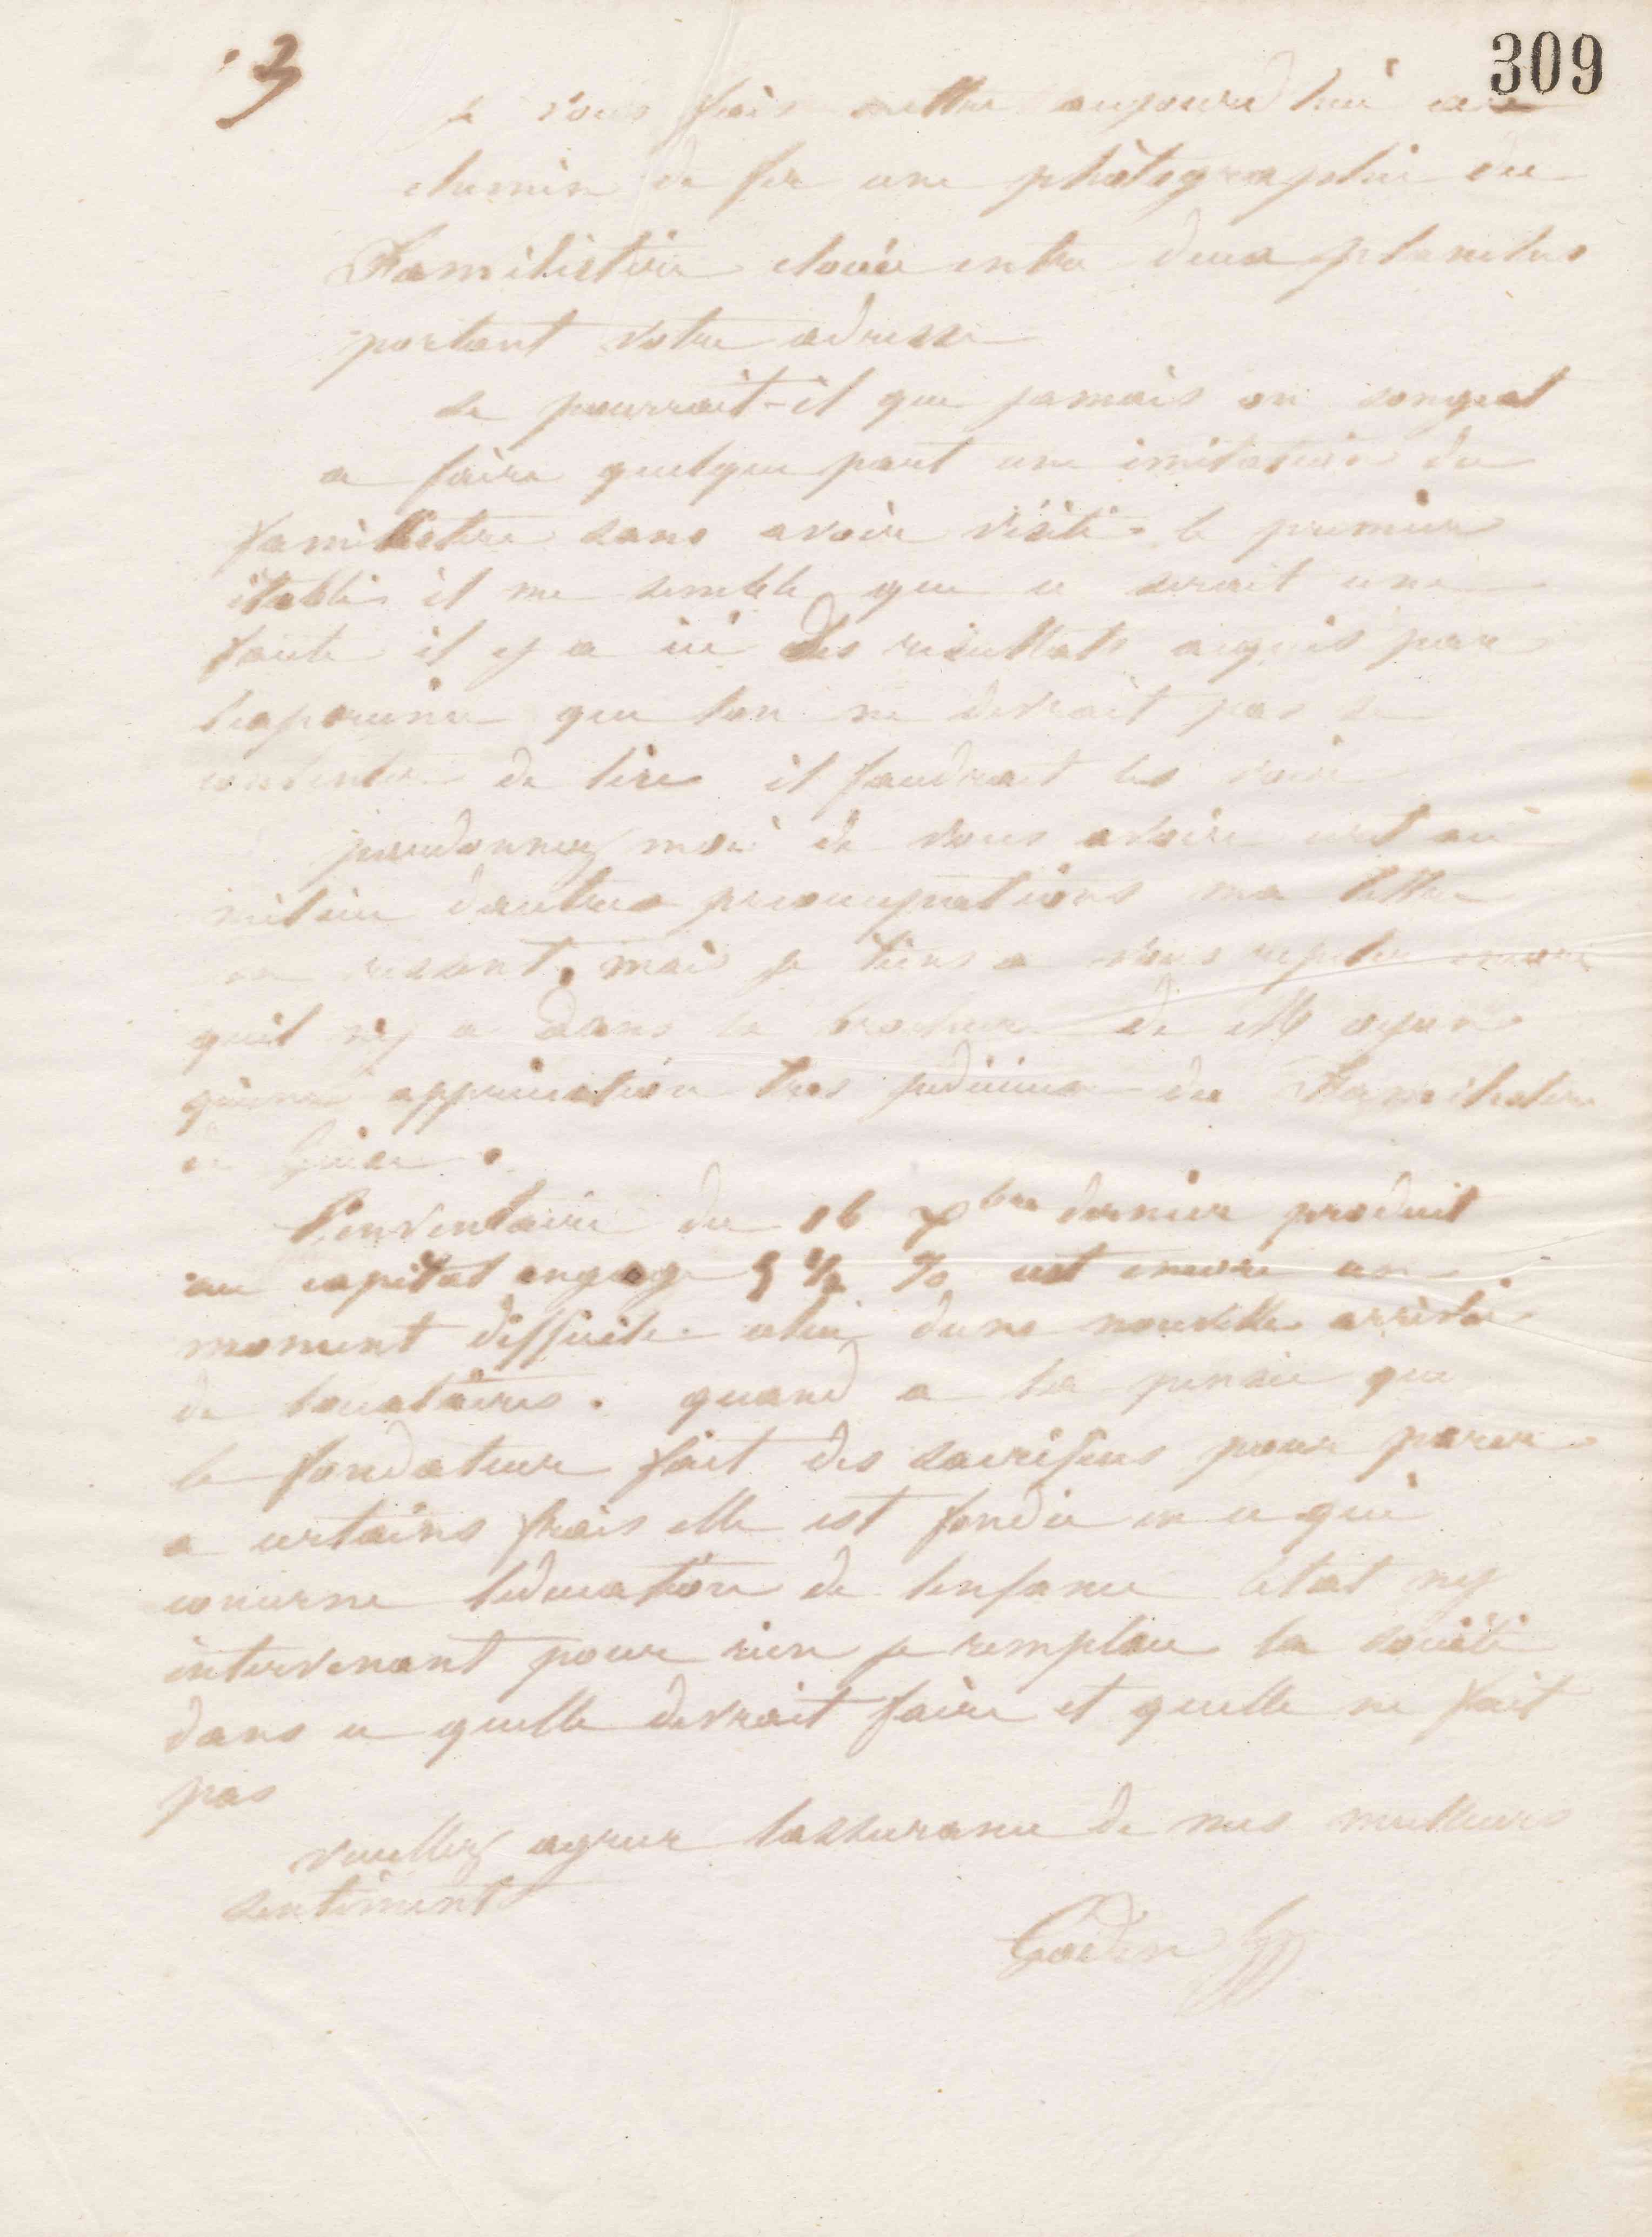 3
309
je vous fais mettre aujourdhui au
chemin de fer une photographie du
Familistère clouée entre deux planches
portant votre adresse
se pourrait-il que jamais on songeat
a faire quelque part une imitation du
familistère sans avoir visité le premier
établi il me semble que ce serait une
faute il y a ici des résultats acquis par
lexperience que lon ne devrait pas se
contenter de lire il faudrait les voir
pardonnez moi de vous avoir ecrit au
milieu dautres preoccupations ma lettre
sen ressent, mais je tiens a vous repeter encore
quil ny a dans la brochure de M oyon
quune appreciation tres judicieuse du Familistere
de Guise.
Linventaire du 16 Xbre dernier produit
au capital engagé 5 ½ % cest encore un
moment difficile celui dune nouvelle arrivée
de locataires. quand a la pensée que
le fondateur fait des sacrifices pour parer
a certains frais elle est fondée en ce qui
concerne leducation de lenfance létat ny
intervenant pour rien je remplace la société
dans ce quelle devrait faire et quelle ne fait
pas
veuillez agreer lassurance de mes meilleurs
sentiments
Godin